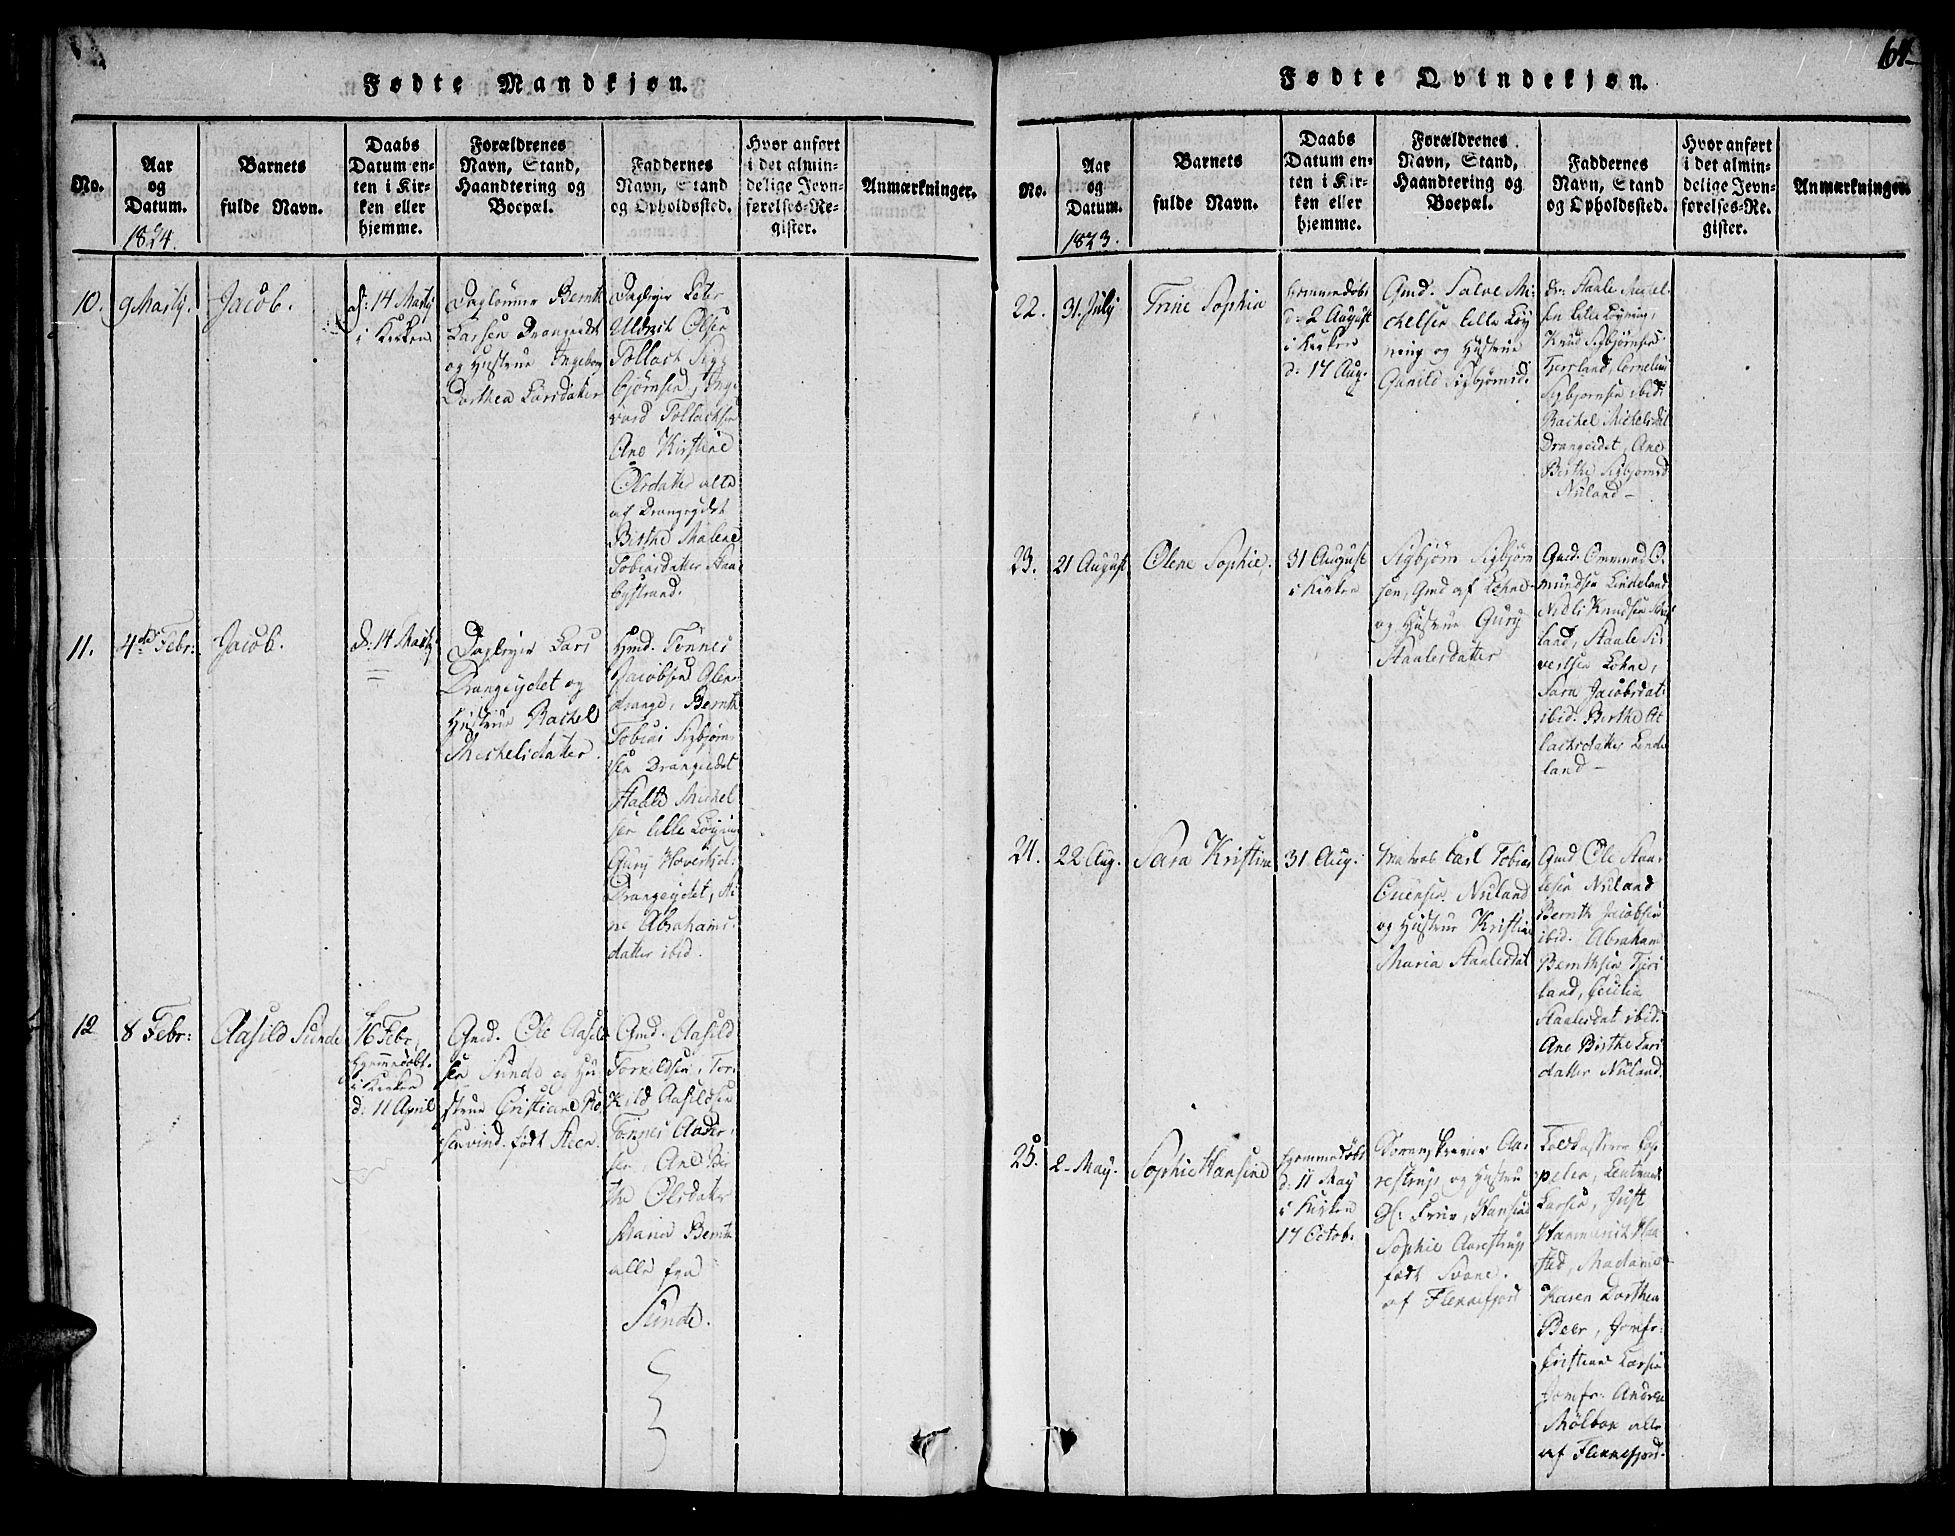 64
Fødte Mandkjøn.
No.
Aar
og
Datum.
1824.
Barnets
fulde Navn.
Daabs
Datum en-
ten i Kir-
ken eller
hjemme.
Forældrenes
Navn, Stand,
Haandtering og
Boepæl.
Faddernes
Navn, Stand
og Opholdssted.
Hvor anført
i det almin-
delige Jevn-
førelses-Re-
gister.
Anmærkninger.
10.
9 Martÿ.
Jacob.
d: 14 Martÿ
i Kirken
Daglønner Bernt
Larsen Drangeidet
og Hustrue Ingeborg
Dorthea Larsdatter
Daglejer Peter
Uldrik Olsen
Tollack Sig-
bjørnsen, Ing-
vord Tollachsen
Ane Kirstine
Olsdatter alle
af Drangeydet
Birthe Malene
Tobiasdatter Staa-
bystrand.
11.
4de Febr:
Jacob.
d: 14 Martÿ
Daglejer Lars
Drangeydet og
Hustrue Rachel
Michelsdatter.
Hmd. Tønnes
Jacobsen Glen-
drange, Bernth
Tobias Sigbjørn-
sen Drangeidet
Staale Michel
sen lille Løgning
Gury Hovertsd.
Drangeydet, An-
ne Abrahams-
datter ibid.
12
8 Febr:
Aasild Sunde
16 Febr,
hjemmedøbt.
i Kirken
d: 11 April
Gmd. Ole Aasild-
sen Sunde og Hu-
strue Cristiane Ro-
senvind født Steen.
Gmd. Aasild
Torkildsen, Tor-
kild Aasildsen
Tønnes Ander-
sen, Ane Bir-
the Olsdater
Maria Bernth
alle fra
Sunde.
Fødte Qvindekjøn.
No.
Aar
og
Datum.
1823.
Barnets
fulde Navn.
Daabs
Datum en-
ten i Kir-
ken eller
hjemme.
Forældrenes
Navn, Stand,
Haandtering og
Boepæl.
Faddernes
Navn, Stand
og Opholdssted.
Hvor anført
i det almin-
delige Jevn-
førelses-Re-
gister.
Anmærkninger.
22.
31. July
Trine Sophia
hjemmedøbt
d: 2 August
i Kirken
d: 17 Aug.
Gmd. Salve Mi-
chelsen lille Løy
ning og Hustrue
Gunild Sigbjørnsd.
Staale Michel-
sen lille Løyning,
Knud Sigbjørnsen
Tjersland, Cornelius
Sigbjørnsen ibid:
Rachel Michelsdat
Drangeidet, Ane
Birthe Sigbjørnsd.
Nuland –
23.
21 August
Olene Sophie,
31 August
i Kirken
Sigbjørn Sigbjørn
sen, Gmd af Lohne
og Hustrue Gury
Staalesdatter
Gmd. Ommund O-
mundsen Lindeland
Niels Knudsen
land, Staale Si-
vertsen Lohne,
Sara Jacobsdat:
ibid: Berthe At-
lachsdatter Linde
land –
24.
22 Aug.
Sara Kristine
31 Aug.
Matros Carl Tobias
Svensen Nuland
og Hustrue Kristine
Maria Staalesdat
Gmd Ole Staa-
lesen Nuland
Bernth Jacobsen
ibid. Abraham
Bernthsen Tjers
land, Cecilia
Staalesdat ibid:
Ane Birthe Lars
datter Nuland.
25.
2 May.
Sophie Hansine
hjemmedøbt
d: 11 May
i Kirken
17 Octob.
Sorenskriver Aa-
restrup og Hustru
Frue, Hansine
Sophie Aarestrup
født Svane.
af Flekkefjord
Toldkasserer Ep-
peler, Leutnant
Larsen, Just
Hammerich Hau-
sted, Madame
Karen Dorthea
Beer, Jomfr:
Cristiane Larsen
Jomfr: Andrea
Mølbak alle
af Flekkefjord.